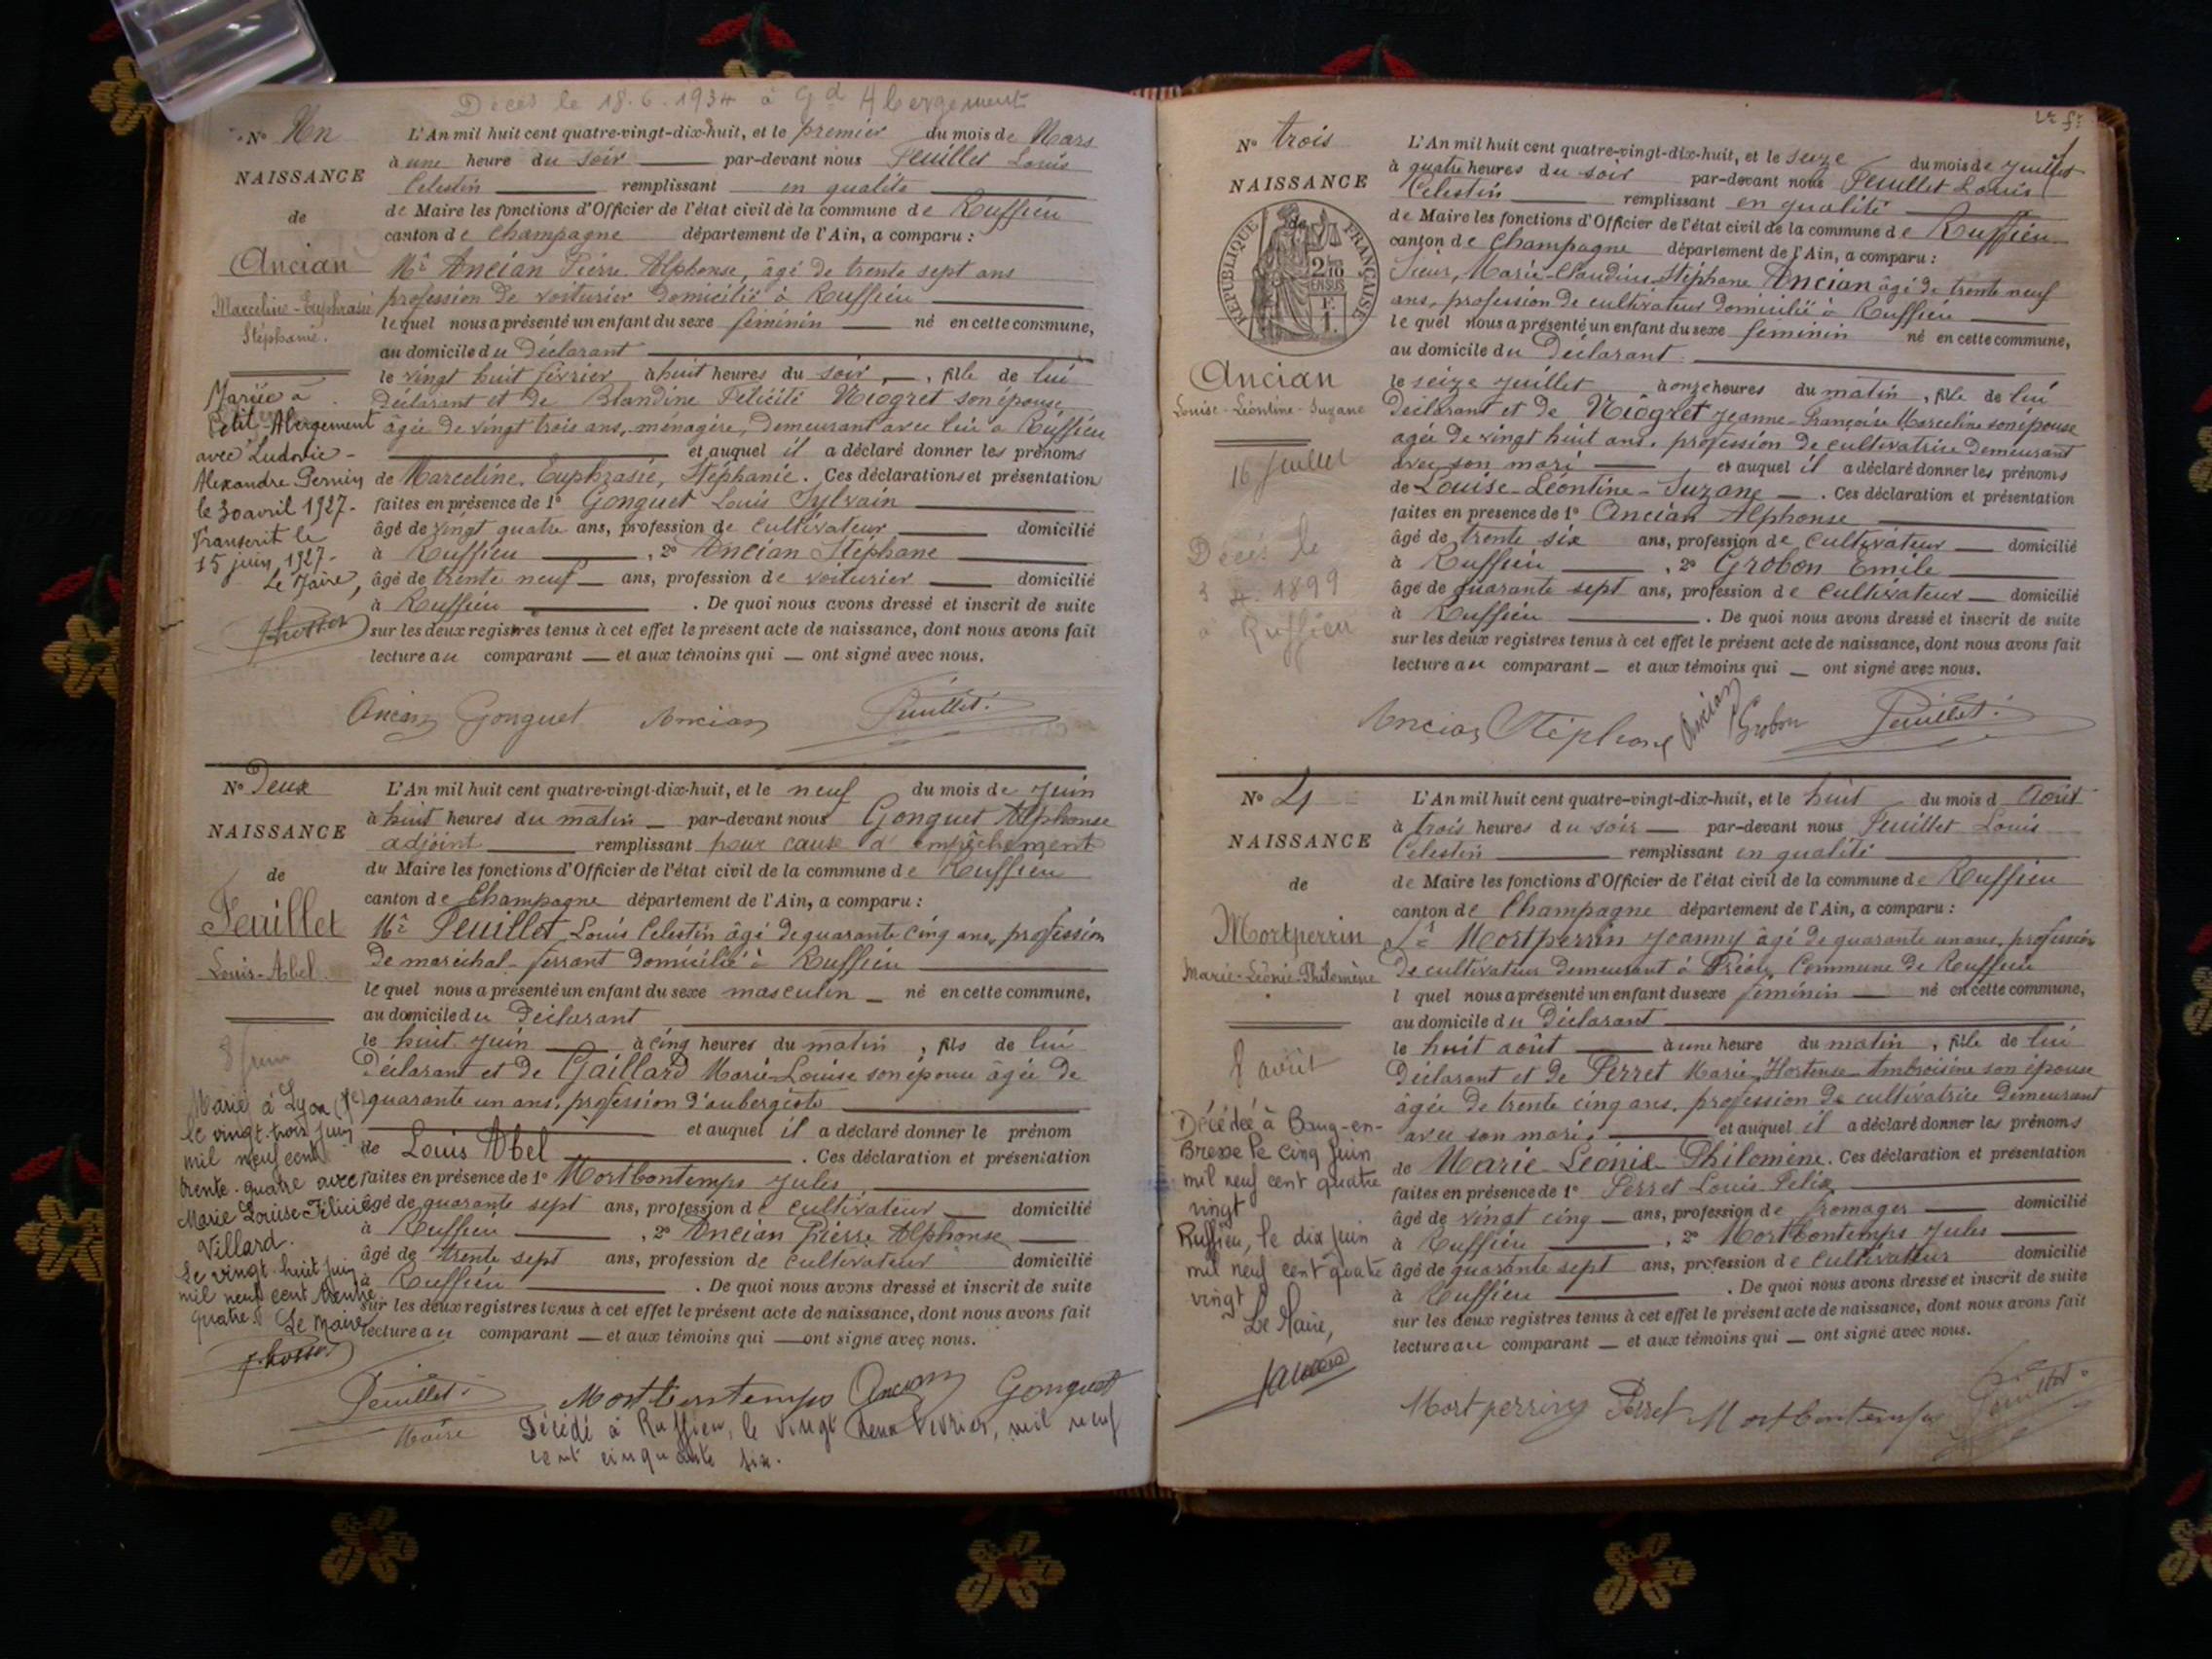 Décès le 18.6.1934 à Gd Abergement
N° Un
NAISSANCE
de
Ancian
Marceline-Euphrasie
Stéphanie.
Mariée à
Petit-Abergement
avec Ludovic-
Alexandre Pernin
le 30 avril 1927.
Transcrit le
15 juin 1927.
Le Maire,
L'An mil huit cent quatre-vingt-dix-huit, et le premier du mois de Mars
à une heure du soir par-devant nous Feuillet Louis
Celestin remplissant en qualité
de Maire les fonctions d'Officier de l'état civil de la commune de Ruffieu
canton de Champagne département de l'Ain, a comparu :
Mr Ancian Pierre Alphonse, âgé de trente sept ans
profession de voiturier domicilié à Ruffieu
lequel nous a présenté un enfant du sexe féminin né en cette commune,
au domicile du Déclarant
le vingt huit février à huit heures du soir, fille de lui
déclarant et de Blandine Félicité Niogret son épouse
âgée de vingt trois ans, ménagère, demeurant avec lui à Ruffieu
et auquel il a déclaré donner les prénoms
de Marceline, Euphrasie, Stéphanie. Ces déclarations et présentation
faites en présence de 1° Gonguet Louis Sylvain
âgé de vingt quatre ans, profession de cultivateur domicilié
à Ruffieu , 2° Ancian Stéphane
âgé de trente neuf ans, profession de voiturier domicilié
à Ruffieu . De quoi nous avons dressé et inscrit de suite
sur les deux registres tenus à cet effet le présent acte de naissance, dont nous avons fait
lecture au comparant et aux témoins qui ont signé avec nous.
Ancian Gonguet Ancian Feuillet
N° Deux
NAISSANCE
de
Feuillet
Louis-Abel
8 juin
Marié à Lyon
le vingt-trois juin
mil neuf cent
trente-quatre avec
Marie Louise Félicie
Villard.
Le vingt-huit juin
mil neuf cent trente
quatre Le Maire
L'An mil huit cent quatre-vingt-dix-huit, et le neuf du mois de Juin
à huit heures du matin par-devant nous Gonguet Alphonse
adjoint remplissant pour cause d'empêchement
du Maire les fonctions d'Officier de l'état civil de la commune de Ruffieu
canton de Champagne département de l'Ain, a comparu :
Mr Feuillet Louis Celestin âgé de quarante cinq ans, profession
de maréchal-ferrant domicilié à Ruffieu
lequel nous a présenté un enfant du sexe masculin né en cette commune,
au domicile du Déclarant
le huit juin à cinq heures du matin, fils de lui
Déclarant et de Gaillard Marie-Louise son épouse âgée de
quarante un ans, profession d'aubergiste
et auquel il a déclaré donner le prénom
de Louis Abel . Ces déclaration et présentation
faites en présence de 1° Mortbontemps Jules
âgé de quarante sept ans, profession de cultivateur domicilié
à Ruffieu , 2° Ancian Pierre Alphonse
âgé de trente sept ans, profession de cultivateur domicilié
à Ruffieu . De quoi nous avons dressé et inscrit de suite
sur les deux registres tenus à cet effet le présent acte de naissance, dont nous avons fait
lecture au comparant et aux témoins qui ont signé avec nous.
Feuillet Mortbontemps Ancian Gonguet
Maire
Décédé à Ruffieu, le vingt deux Février, mil neuf
cent cinquante six.
N° trois
NAISSANCE
de
RÉPUBLIQUE FRANÇAISE
Ancian
Louise-Léontine-Suzane
16 Juillet
Décès le
3 1899
à Ruffieu
L'An mil huit cent quatre-vingt-dix-huit, et le seize du mois de Juillet
à quatre heures du soir par-devant nous Feuillet Louis
Celestin remplissant en qualité
de Maire les fonctions d'Officier de l'état civil de la commune de Ruffieu
canton de Champagne département de l'Ain, a comparu :
Sieur, Marie-Claudius-Stéphane Ancian âgé de trente neuf
ans, profession de cultivateur domicilié à Ruffieu
lequel nous a présenté un enfant du sexe féminin né en cette commune,
au domicile du Déclarant.
le seize Juillet à onze heures du matin, fille de lui
Déclarant et de Niogret Jeanne-Françoise Marceline son épouse
agée de vingt huit ans, profession de cultivatrice demeurant
avec son mari et auquel il a déclaré donner les prénoms
de Louise-Léontine-Suzane . Ces déclaration et présentation
faites en présence de 1° Ancian Alphonse
âgé de trente six ans, profession de cultivateur domicilié
à Ruffieu , 2° Grobon Emile
âgé de quarante sept ans, profession de cultivateur domicilié
à Ruffieu . De quoi nous avons dressé et inscrit de suite
sur les deux registres tenus à cet effet le présent acte de naissance, dont nous avons fait
lecture au comparant et aux témoins qui ont signé avec nous.
Ancian Stéphane Ancian Grobon Feuillet
N° 4
NAISSANCE
de
Mortperrin
Marie-Léonie-Philomène
8 août
Décédée à Bourg-en-
Bresse le cinq juin
mil neuf cent quatre
vingt
Ruffieu, le dix juin
mil neuf cent quatre
vingt
Le Maire,
L'An mil huit cent quatre-vingt-dix-huit, et le huit du mois d Août
à trois heures du soir par-devant nous Feuillet Louis
Celestin remplissant en qualité
de Maire les fonctions d'Officier de l'état civil de la commune de Ruffieu
canton de Champagne département de l'Ain, a comparu :
Sr Mortperrin Joanny âgé de quarante un ans, profession
de cultivateur demeurant à Commune de Ruffieu
l quel nous a présenté un enfant du sexe féminin né en cette commune,
au domicile du Déclarant
le huit août à une heure du matin, fille de lui
Déclarant et de Perret Marie, Hortense-Ambroisine son épouse
âgée de trente cinq ans, profession de cultivatrice demeurant
avec son mari, et auquel il a déclaré donner les prénoms
de Marie-Léonie-Philomène. Ces déclaration et présentation
faites en présence de 1° Perret Louis-Félix
âgé de vingt cinq ans, profession de fromager domicilié
à Ruffieu , 2° Mortbontemps Jules
âgé de quarante sept ans, profession de cultivateur domicilié
à Ruffieu . De quoi nous avons dressé et inscrit de suite
sur les deux registres tenus à cet effet le présent acte de naissance, dont nous avons fait
lecture au comparant et aux témoins qui ont signé avec nous.
Mortperrin Perret Mortbontemps Feuillet